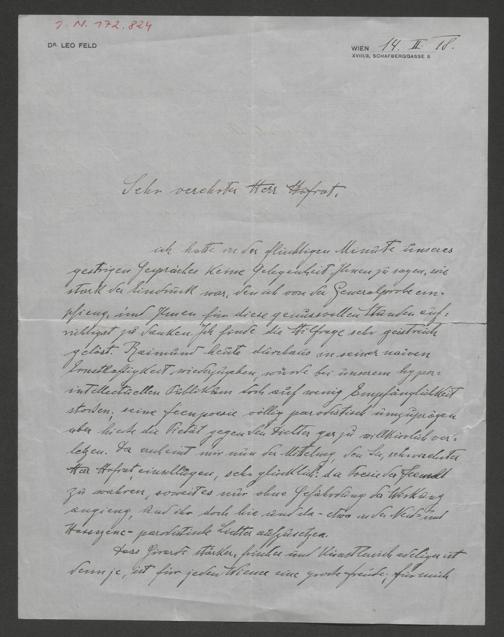 J. N. 172.824
DR. LEO FELD
WIEN 14. II. 18.
XVIII/3, SCHAFBERGGASSE 5
Sehr verehrter Herr Hofrat,
ich hatte in der flüchtigen Minute unseres
gestrigen Gespräches keine Gelegenheit, Ihnen zu sagen, wie
stark der Eindruck war, den ich von der Generalprobe em-
pfieng, und Ihnen für diese genussvollen Stunden auf-
richtigst zu danken. Ich finde die Stilfrage sehr geistreich
gelöst. Raimund heute durchaus in seiner naiven
Ernsthaftigkeit wiederzugeben, würde bei unserem hyper-
intellectuellen Publikum doch auf wenig Empfänglichkeit
stossen; seine Feenpoesie völlig parodistisch umzuprägen
aber hiesse die Pietät gegen den Dichter gar zu willkürlich ver-
letzen. Da erscheint mir nun der Mittelweg, den Sie, sehr verehrter
Herr Hofrat, einschlugen, sehr glücklich: die Poesie der
zu wahren, soweit es nur ohne Gefährdung der Wirkung
angieng und ihr doch hie und da - etwa in der Neid- und
Hassszene - parodistische Lichter aufzusetzen.
Dass Girardi stärker, frischer und künstlerisch adeliger ist
denn je, ist für jeden Wiener eine grosse Freude; für mich